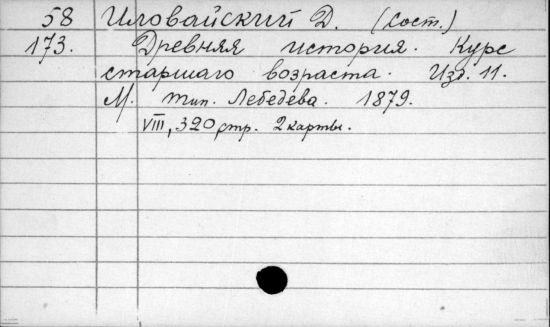 58 Иловайский Д. (Сост.)
173. Древняя история. Курс
старшаго возраста. Изд. 11.
М. тип. Лебедева. 1879.
VIII, 320 стр. 2 карты.